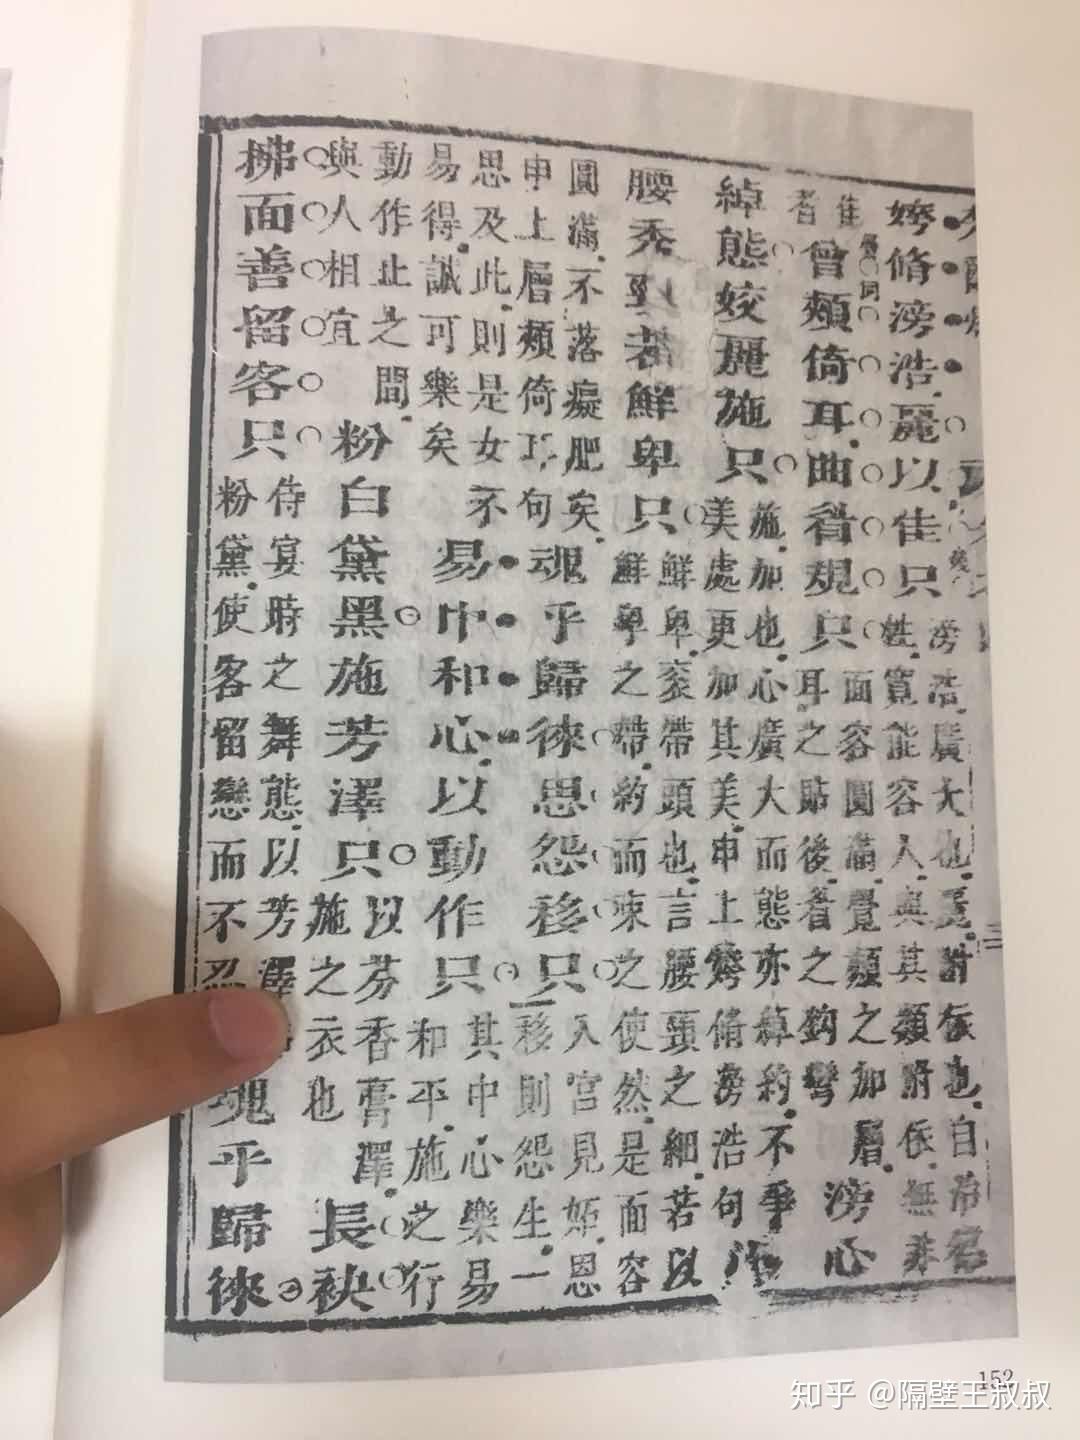 姱脩滂浩麗以佳只
滂浩廣大也麗附依也自冶容
姓寬能容人與其類附依無非
佳
者
曾頰倚耳曲眉規只
面容圓滿覺頰之加層
耳之貼後着之鈎彎
滂心
綽態姣麗施只
施加也心廣大而態亦綽約不爭
美處更加其美申上姱脩滂浩句
腰秀頸若鮮卑只
鮮卑衮帶頭也言腰頸之細若以
鮮卑之帶約而束之使然是面容
圓滿不落癡肥矣
申上層頰倚耳句
魂乎歸徠思怨移只
入宮見姬恩
移則怨生一
思及此則是女不
易得誠可樂矣
易中和心以動作只
其中心樂易
和平施之行
動作止之間
與人相宜
粉白黛黑施芳澤只
以芬香膏澤
施之衣也
長袂
拂面善留客只
侍宴時之舞態以芳澤
粉黛使客留戀而不忍
魂乎歸徠
152
知乎 @隔壁王叔叔